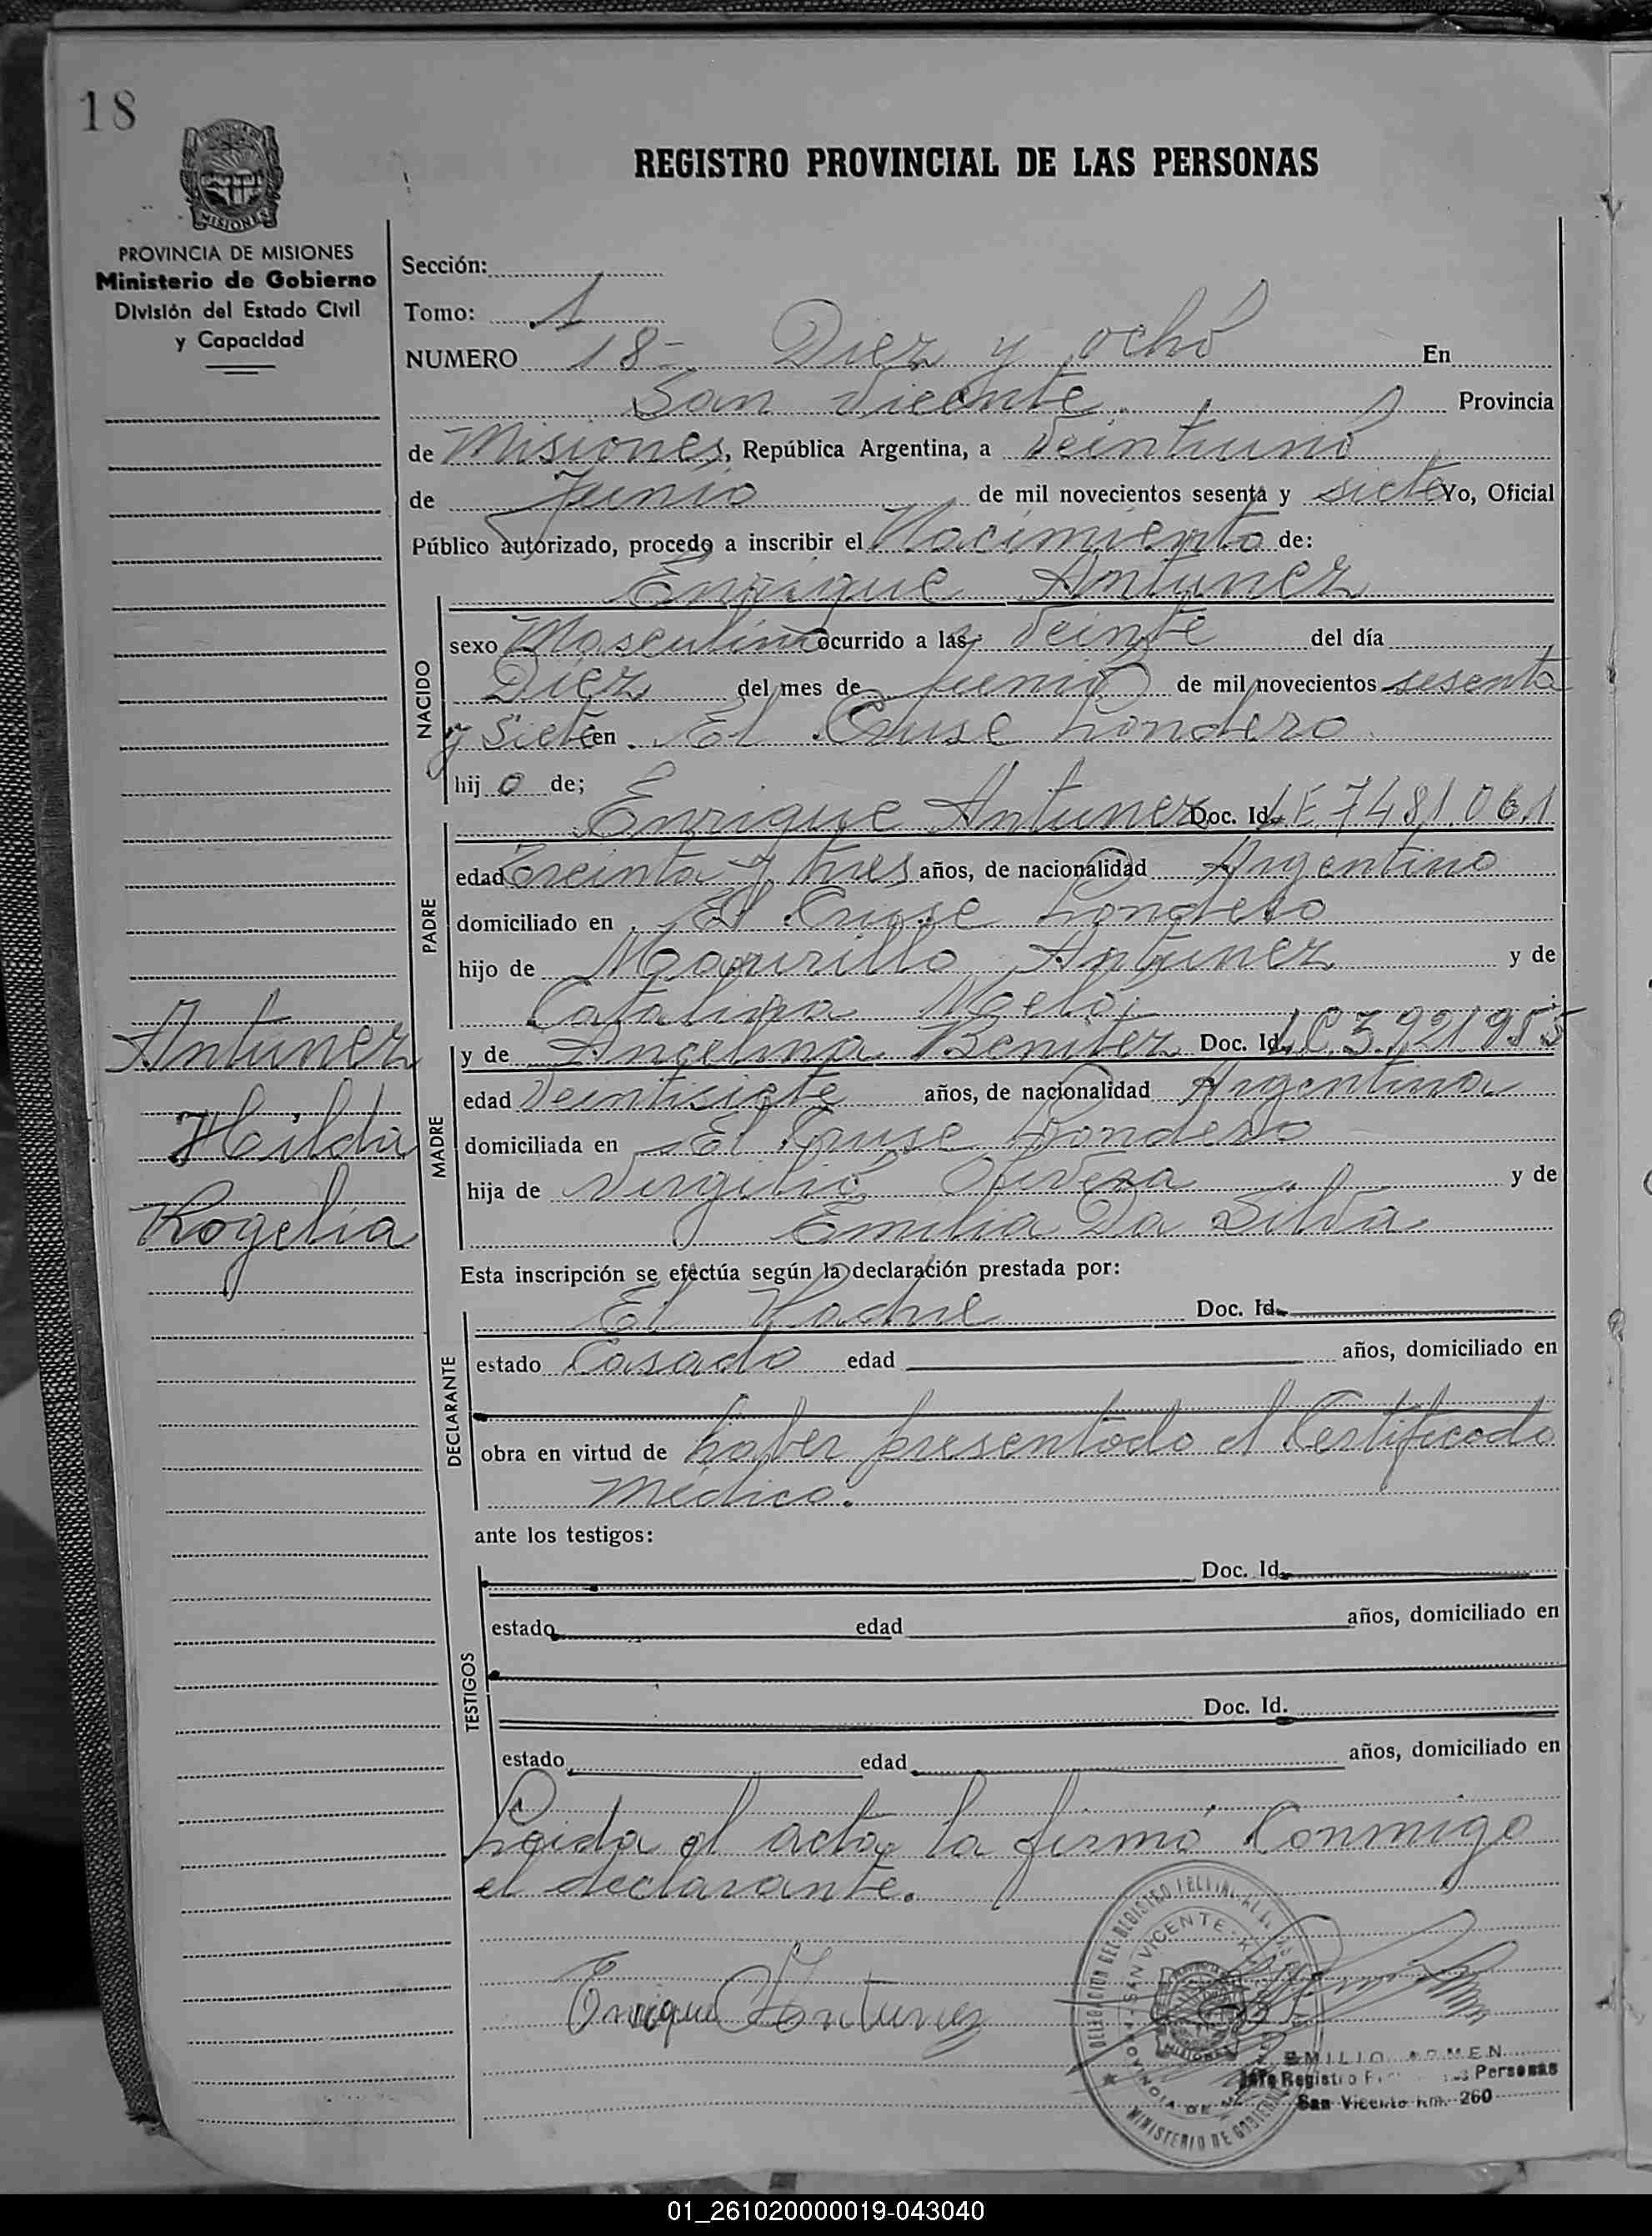 18
MISIONES
PROVINCIA DE MISIONES
Ministerio de Gobierno
División del Estado Civil
y Capacidad
REGISTRO PROVINCIAL DE LAS PERSONAS
Sección:
Tomo: 1
NUMERO 18- Diez y ocho En
San Vicente Provincia
de Misiones, República Argentina, a Veintiuno
de Junio de mil novecientos sesenta y siete Yo, Oficial
Público autorizado, procedo a inscribir el Nacimiento de:
Enrique Antunez
NACIDO
sexo Masculino ocurrido a las Veinte del día
Diez del mes de Junio de mil novecientos sesenta
y Siete en El Cruse Londero
hijo de;
PADRE
Enrique Antunez Doc. Id. LE 7481.061
edad Treinta y tres años, de nacionalidad Argentino
domiciliado en El Cruse Londero
hijo de Antunez y de
Catalina Melo
Antunez
Hilda
Rogelia
MADRE
y de Angelina Benitez Doc. Id. LC 3.921955
edad Veintisiete años, de nacionalidad Argentina
domiciliada en El Cruse Londero
hija de Virgilio Olivera y de
Emilia Da Silva
Esta inscripción se efectúa según la declaración prestada por:
DECLARANTE
El Padre Doc. Id.
estado Casado edad años, domiciliado en
obra en virtud de haber presentado el Certificado
Médico.
ante los testigos:
TESTIGOS
Doc. Id.
estado edad años, domiciliado en
Doc. Id.
estado edad años, domiciliado en
Leida el acta la firmó Conmigo
el declarante.
Enrique Antunez
SAN VICENTE
MINISTERIO DE GOBIERNO
EMILIO
Jefe Registro Personas
San Vicente Km. 260
01_261020000019-043040